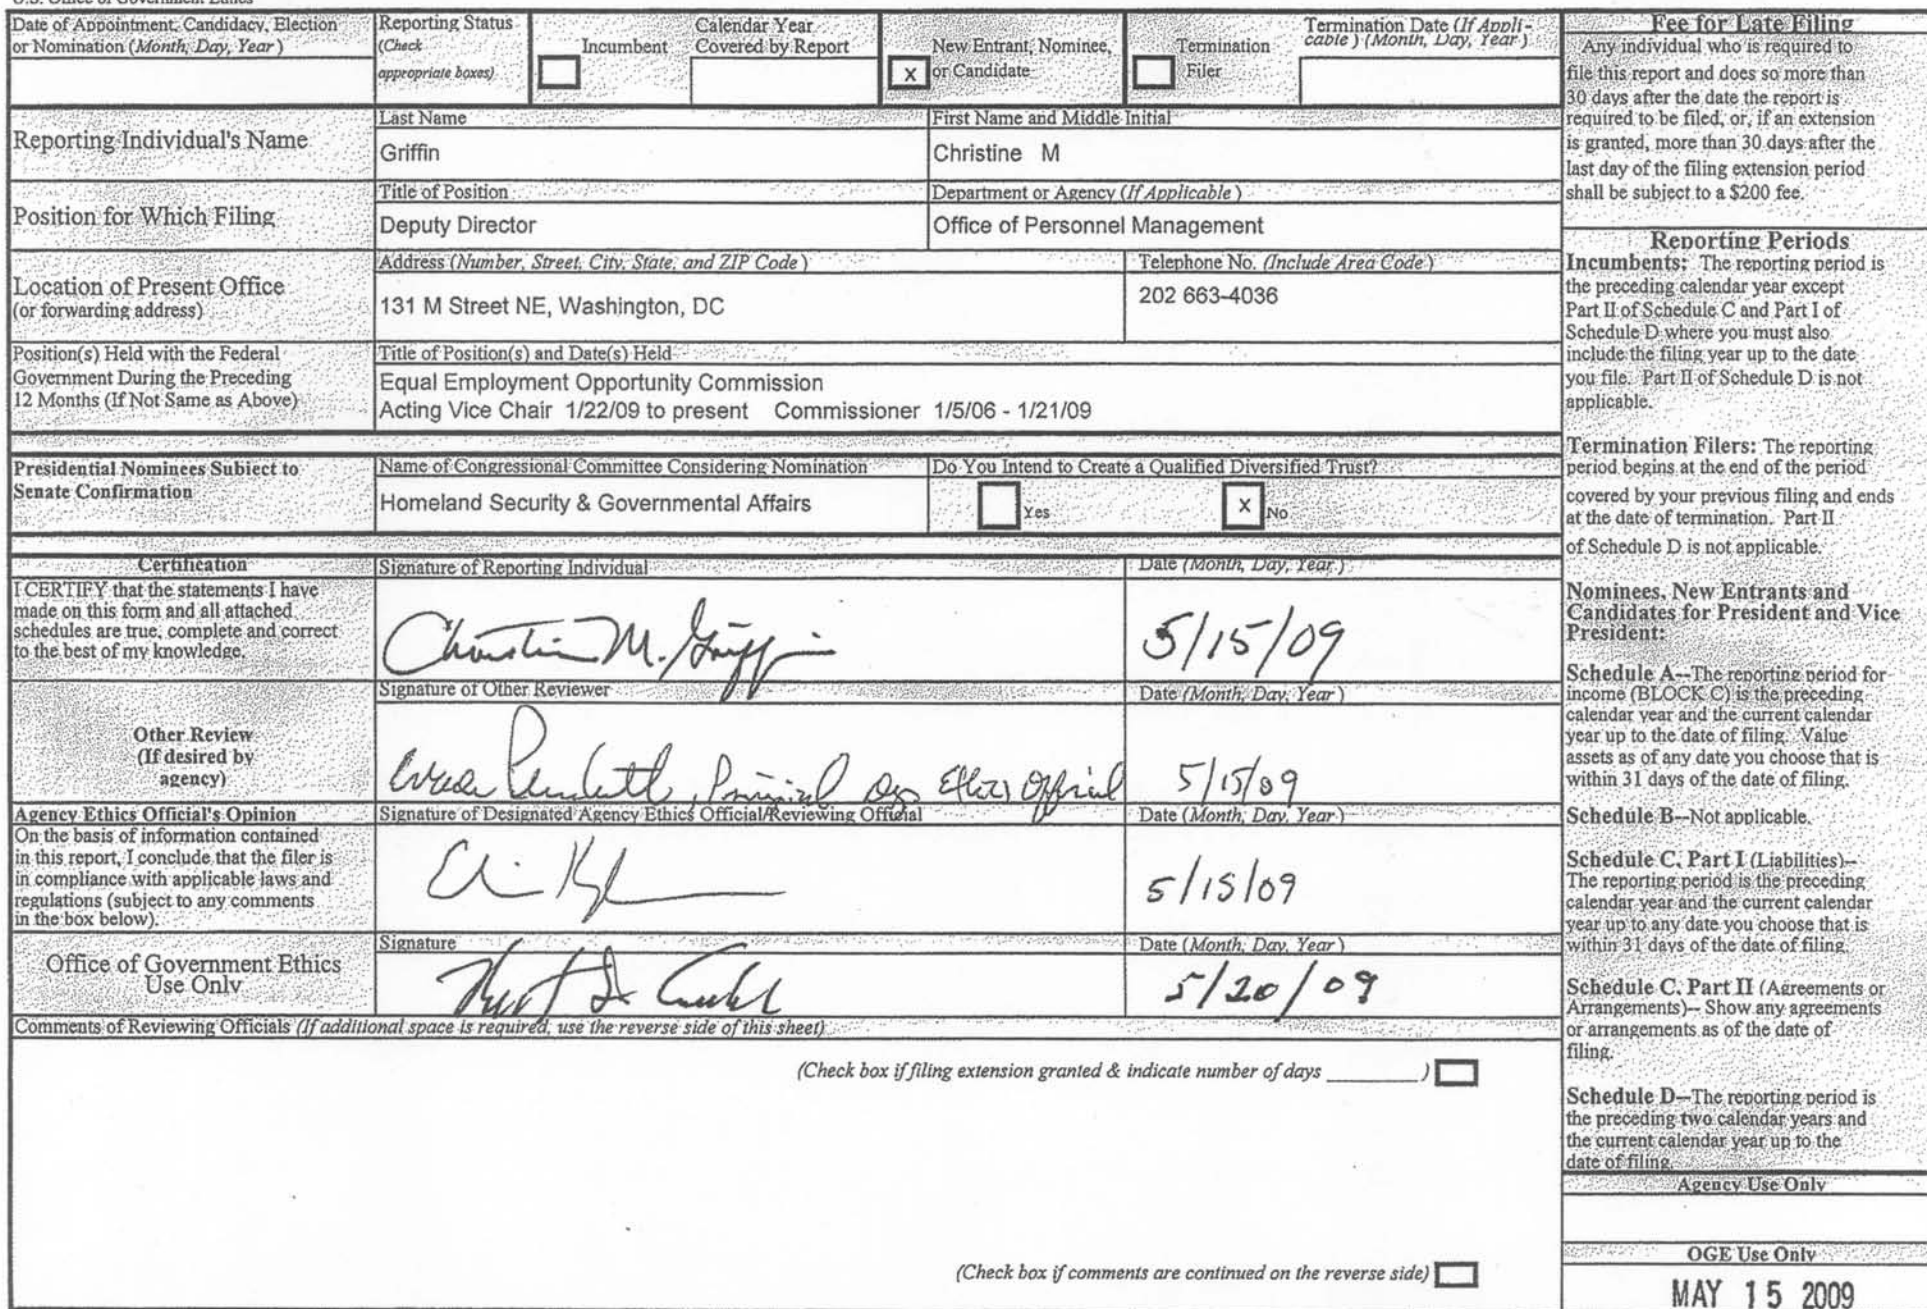 Date of Appointment, Candidacy, Election
or Nomination (Month, Day, Year)
Reporting Status
(Check
appropriate boxes)
Incumbent
Calendar Year
Covered by Report
x
New Entrant, Nominee,
or Candidate
Termination
Filer
Termination Date (If Appli-
cable) (Month, Day, Year)
Reporting Individual's Name
Last Name
First Name and Middle Initial
Griffin
Christine M
Position for Which Filing
Title of Position
Department or Agency (If Applicable)
Deputy Director
Office of Personnel Management
Location of Present Office
(or forwarding address)
Address (Number, Street, City, State, and ZIP Code)
Telephone No. (Include Area Code)
131 M Street NE, Washington, DC
202 663-4036
Position(s) Held with the Federal
Government During the Preceding
12 Months (If Not Same as Above)
Title of Position(s) and Date(s) Held
Equal Employment Opportunity Commission
Acting Vice Chair 1/22/09 to present Commissioner 1/5/06 - 1/21/09
Presidential Nominees Subject to
Senate Confirmation
Name of Congressional Committee Considering Nomination
Do You Intend to Create a Qualified Diversified Trust?
Homeland Security & Governmental Affairs
Yes
x No
Certification
I CERTIFY that the statements I have
made on this form and all attached
schedules are true, complete and correct
to the best of my knowledge.
Signature of Reporting Individual
Date (Month, Day, Year)
Christine M. Griffin
5/15/09
Other Review
(If desired by
agency)
Signature of Other Reviewer
Date (Month, Day, Year)
Ethics Official
5/15/09
Agency Ethics Official's Opinion
On the basis of information contained
in this report, I conclude that the filer is
in compliance with applicable laws and
regulations (subject to any comments
in the box below).
Signature of Designated Agency Ethics Official/Reviewing Official
Date (Month, Day, Year)
5/15/09
Office of Government Ethics
Use Only
Signature
Date (Month, Day, Year)
5/20/09
Comments of Reviewing Officials (If additional space is required, use the reverse side of this sheet)
(Check box if filing extension granted & indicate number of days ________)
(Check box if comments are continued on the reverse side)
Fee for Late Filing
Any individual who is required to
file this report and does so more than
30 days after the date the report is
required to be filed, or, if an extension
is granted, more than 30 days after the
last day of the filing extension period
shall be subject to a $200 fee.
Reporting Periods
Incumbents: The reporting period is
the preceding calendar year except
Part II of Schedule C and Part I of
Schedule D where you must also
include the filing year up to the date
you file. Part II of Schedule D is not
applicable.
Termination Filers: The reporting
period begins at the end of the period
covered by your previous filing and ends
at the date of termination. Part II
of Schedule D is not applicable.
Nominees, New Entrants and
Candidates for President and Vice
President:
Schedule A--The reporting period for
income (BLOCK C) is the preceding
calendar year and the current calendar
year up to the date of filing. Value
assets as of any date you choose that is
within 31 days of the date of filing.
Schedule B--Not applicable.
Schedule C, Part I (Liabilities)--
The reporting period is the preceding
calendar year and the current calendar
year up to any date you choose that is
within 31 days of the date of filing.
Schedule C, Part II (Agreements or
Arrangements)-- Show any agreements
or arrangements as of the date of
filing.
Schedule D--The reporting period is
the preceding two calendar years and
the current calendar year up to the
date of filing.
Agency Use Only
OGE Use Only
MAY 15 2009